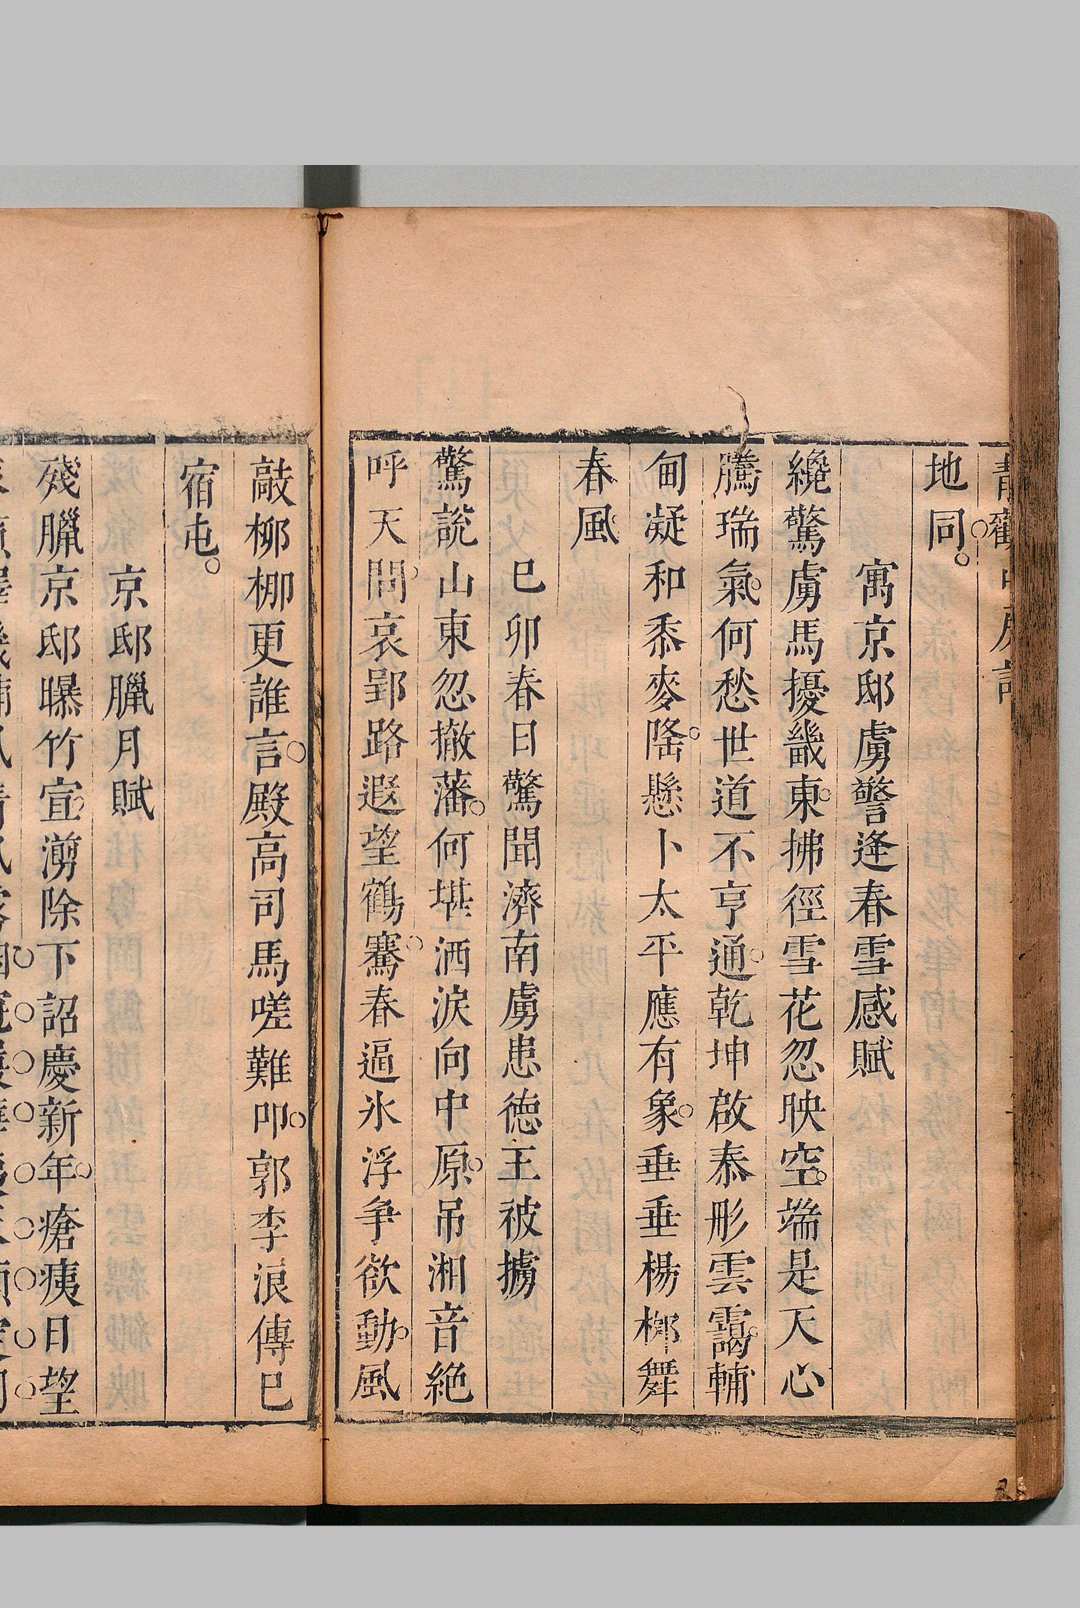 地同
寓京邸虜警逢春雪感賦
纔驚虜馬擾畿東拂徑雪花忽映空端是天心
騰瑞氣何愁世道不亨通乾坤啟泰形雲靄輔
甸凝和黍麥隂懸卜太平應有象垂垂楊柳舞
春風
巳卯春日驚聞濟南虜患德王被擄
驚說山東忽撤藩何堪洒淚向中原吊湘音絕
呼天問哀郢路遐望鶴騫春逼氷浮爭欲動風
敲柳梆更誰言殿高司馬嗟難叩郭李浪傳巳
宿屯
京邸臘月賦
殘臘京邸曝竹宣㴝除下詔慶新年瘡痍日望